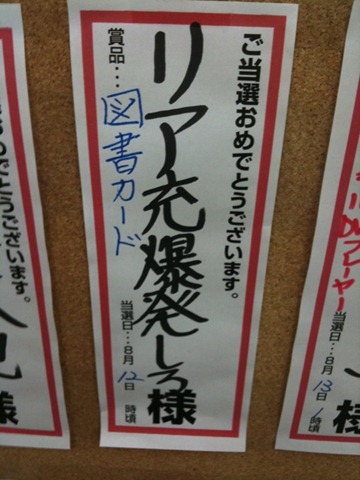 ご当選おめでとうございます。
リア充爆発しろ様
賞品…図書カード
当選日…8月12日 時頃
おめでとうございます。
様
プレーヤー
当選日…8月13日1時頃
様